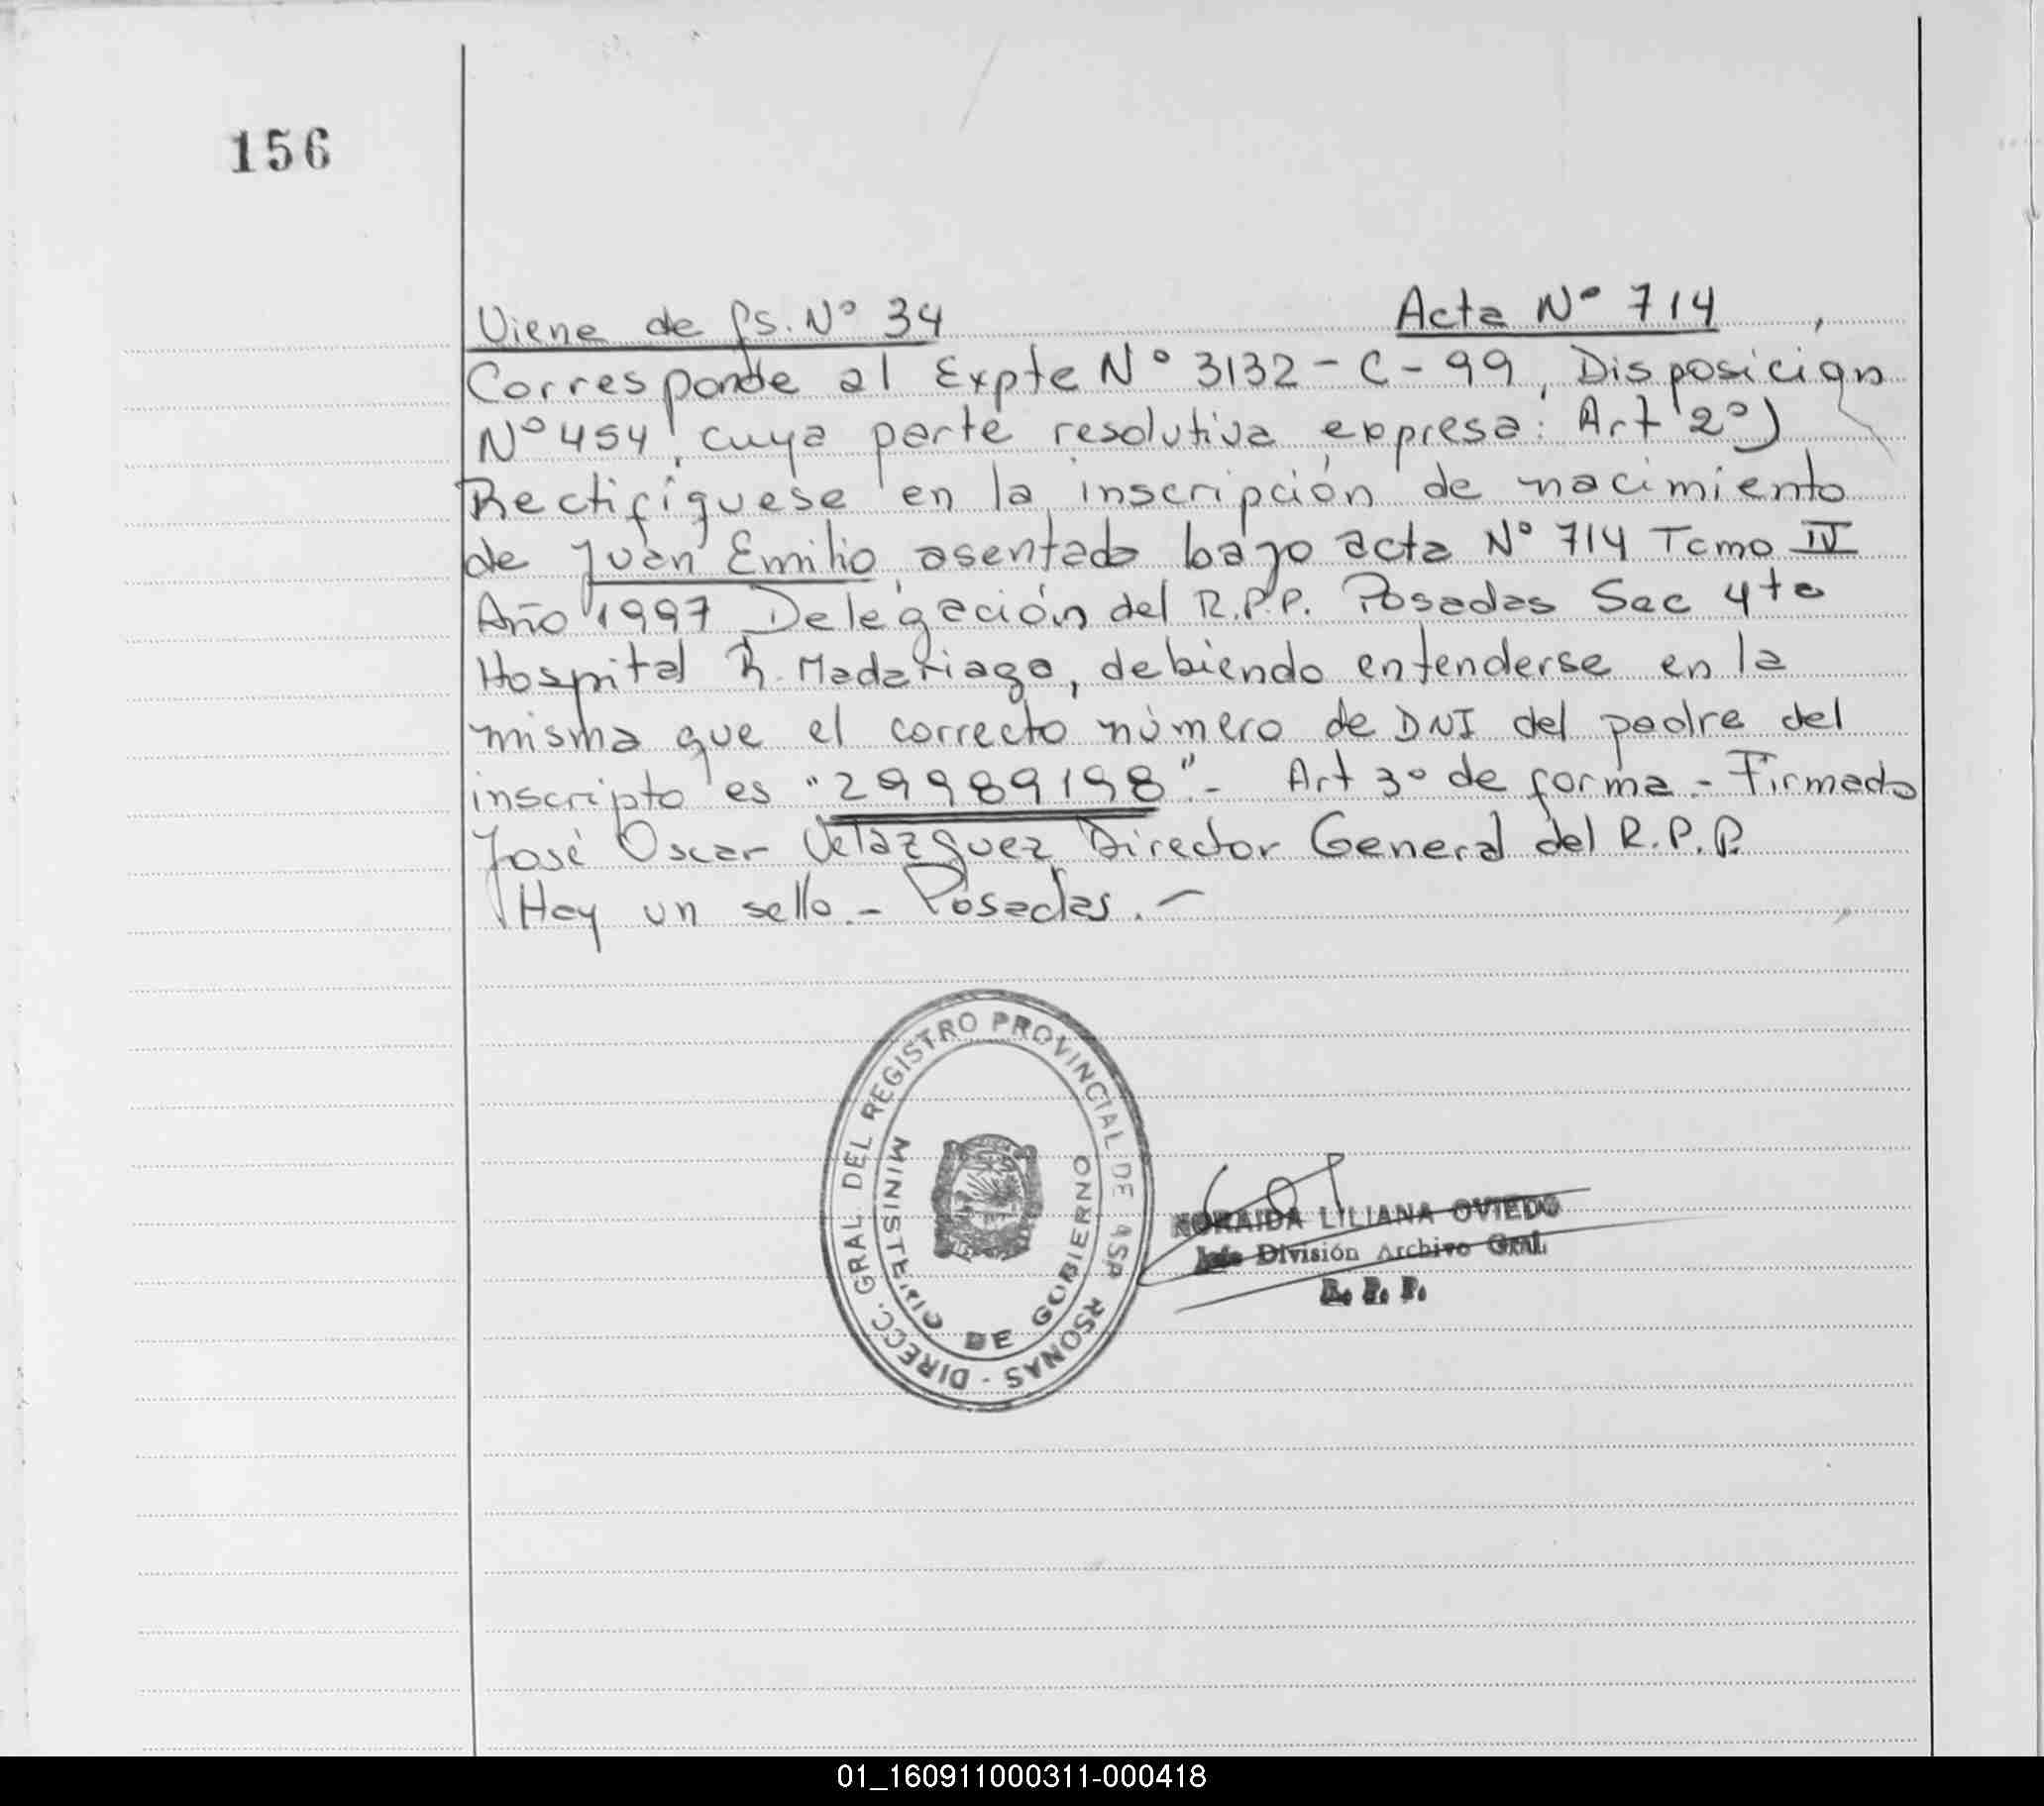 156
Viene de fs. Nº 34 Acta Nº 714
Corresponde al Expte Nº 3132-C-99, Disposición
Nº 454, cuya parte resolutiva expresa: Art 2º)
Rectifíquese en la inscripción de nacimiento
de Juan Emilio, asentada bajo acta Nº 714 Tomo IV
Año 1997 Delegación del R.P.P. Posadas Sec 4ta
Hospital R. Madariaga, debiendo entenderse en la
misma que el correcto número de DNI del padre del
inscripto es "29989198".- Art 3º de forma.- Firmado
José Oscar Velazquez Director General del R.P.P.
Hay un sello.- Posadas.-
DIRECC. GRAL DEL REGISTRO PROVINCIAL DE RSONAS -
MINISTERIO DE GOBIERNO
NORAIDA LILIANA OVIEDO
Jefe División Archivo Gral.
R. P. P.
01_160911000311-000418